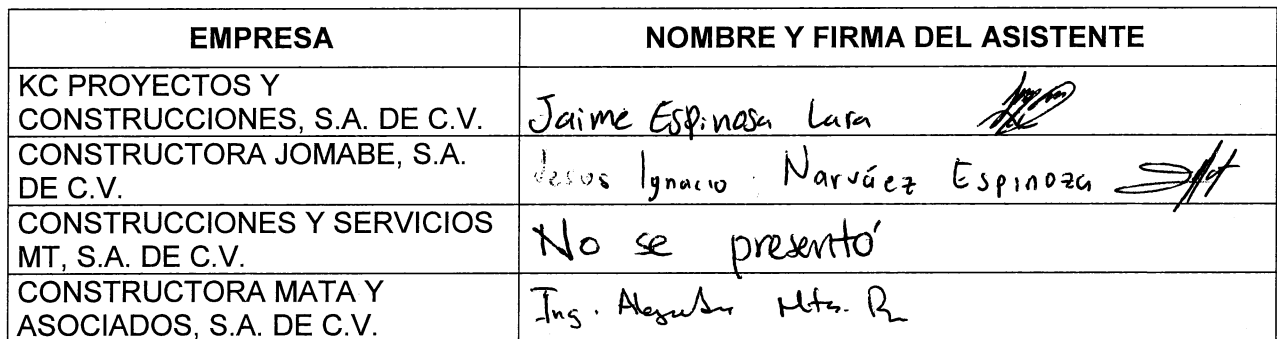 EMPRESA NOMBRE Y FIRMA DEL ASISTENTE
KC PROYECTOS Y
CONSTRUCCIONES, S.A. DE C.V. Jaime Espinosa Lara
CONSTRUCTORA JOMABE, S.A.
DE C.V. Jesus Ignacio Narváez Espinoza
CONSTRUCCIONES Y SERVICIOS
MT, S.A. DE C.V. No se presentó
CONSTRUCTORA MATA Y
ASOCIADOS, S.A. DE C.V. Ing.